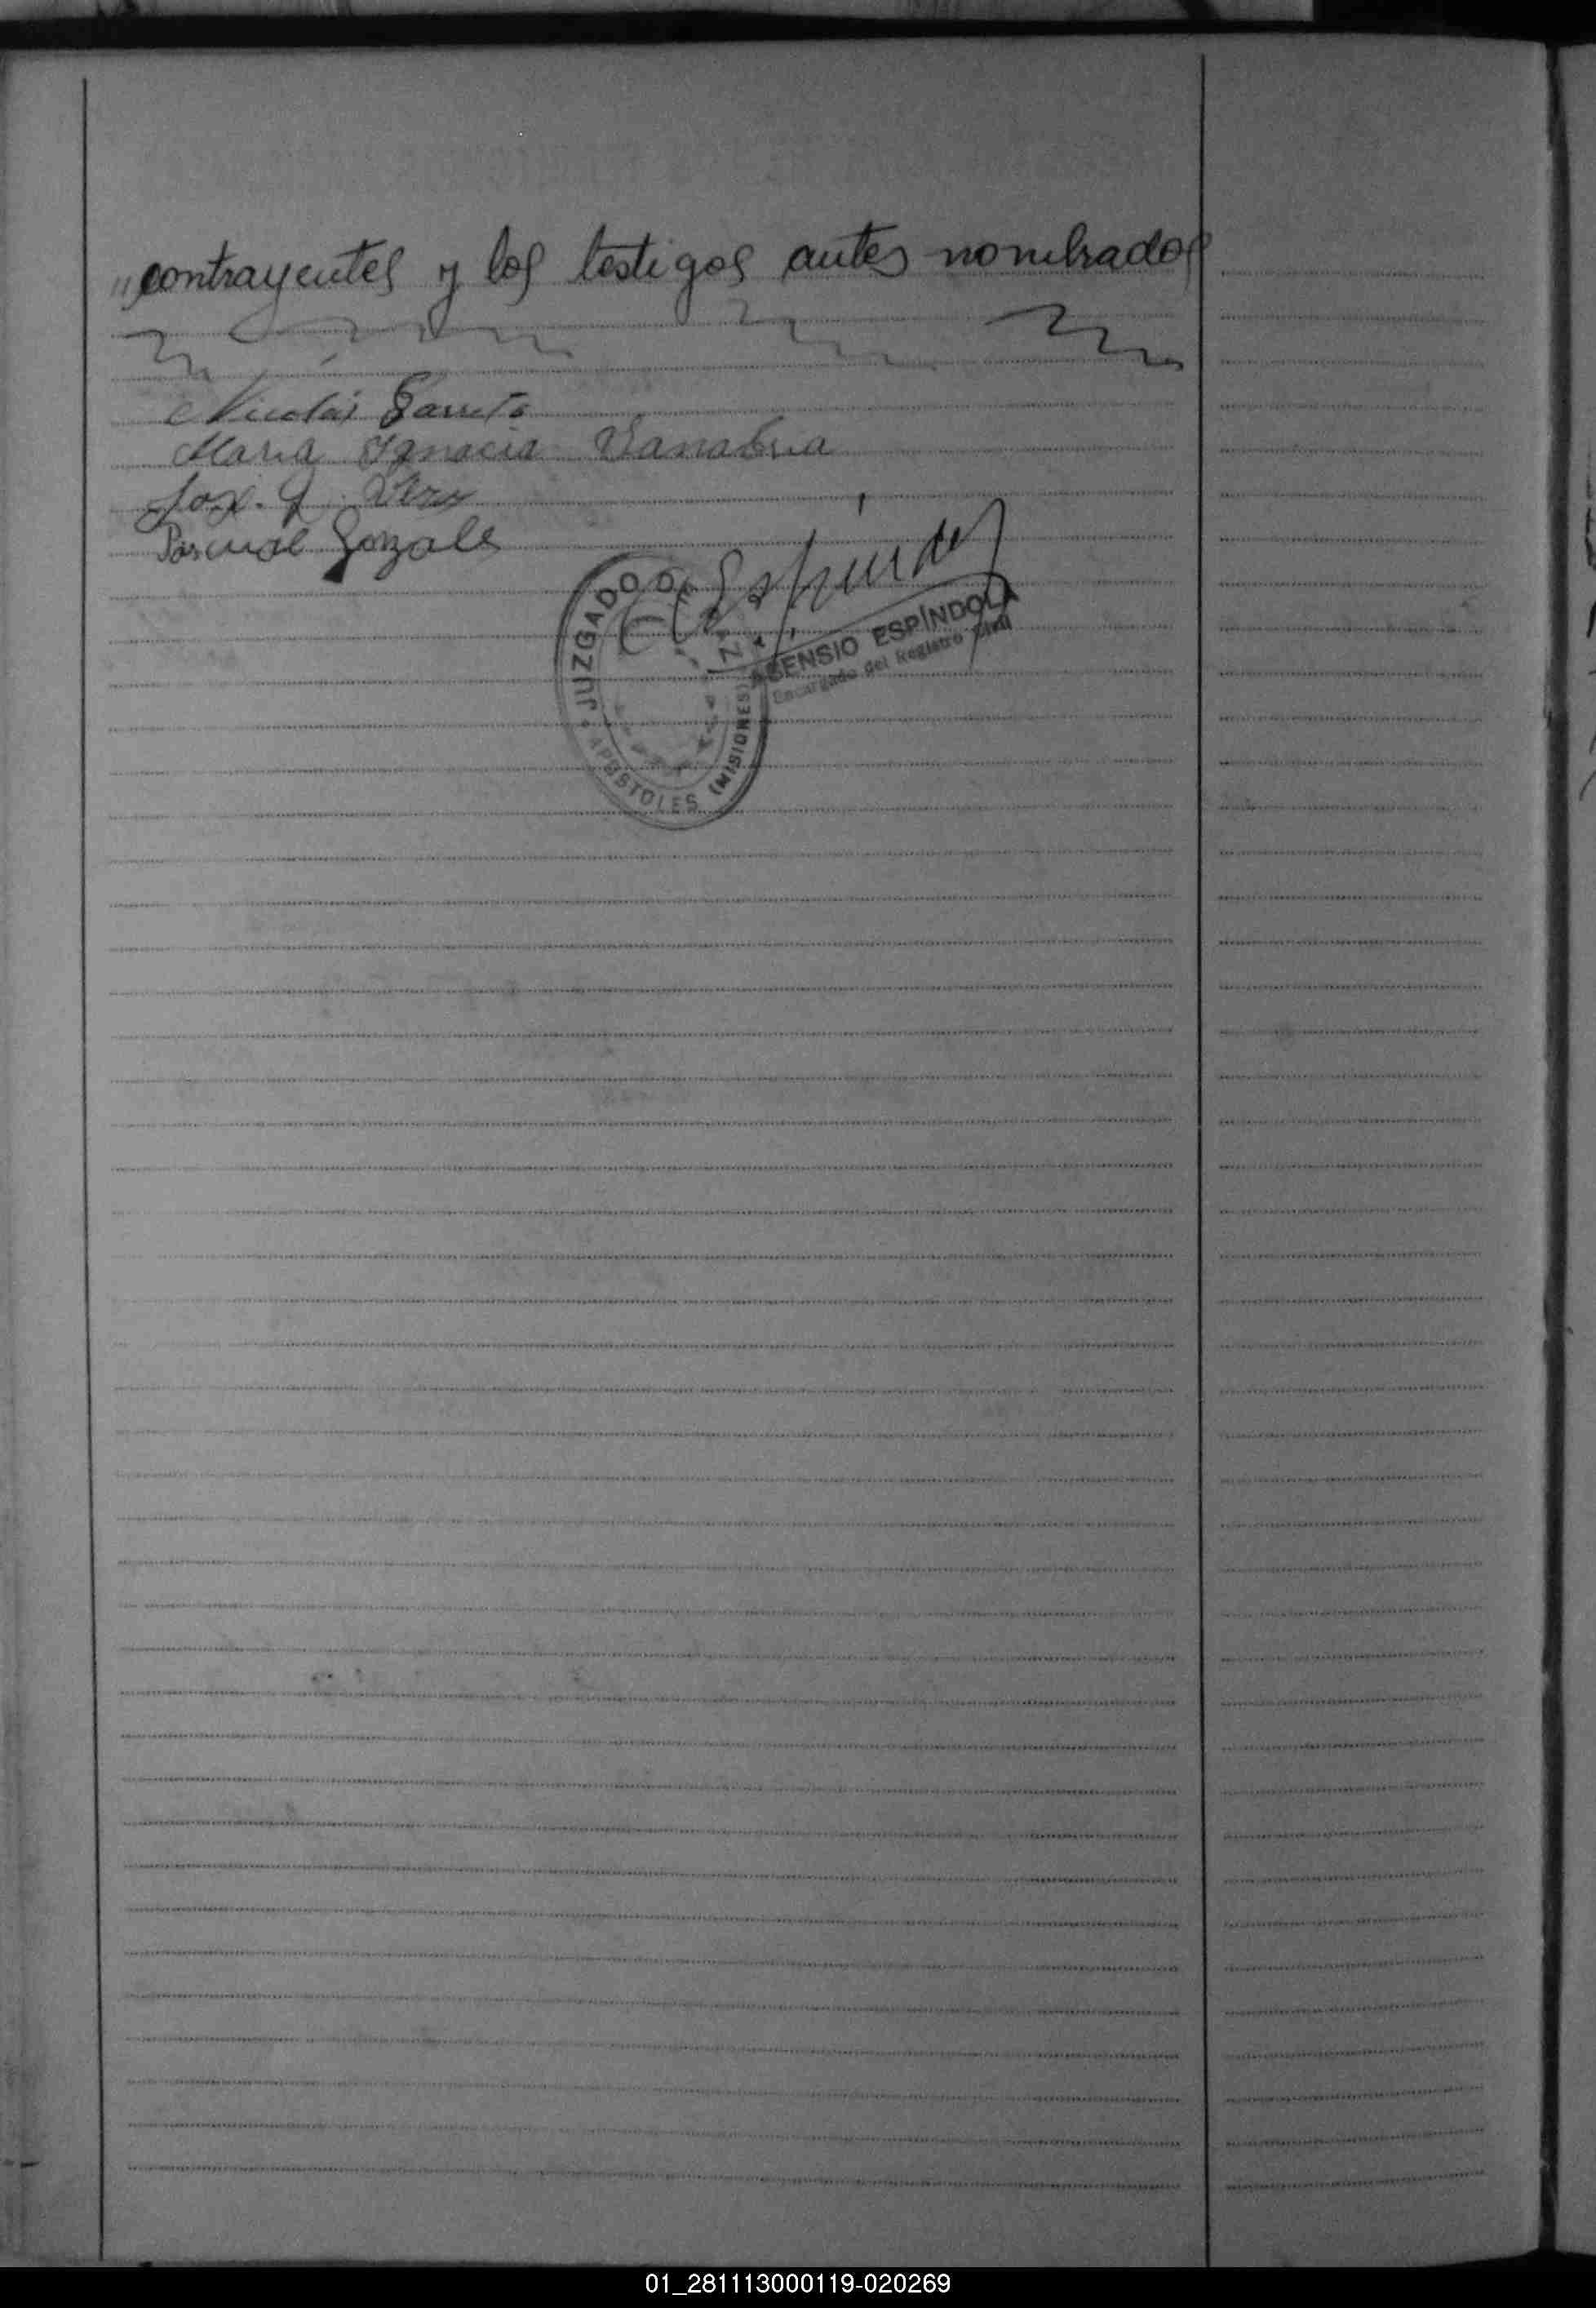 "contrayentes y los testigos antes nombrados
Nicolás
Maria Ignacia Sanabria
Jose
Pascual Gonzale
Espindo
JUZGADO DE PAZ
APOSTOLES (MISIONES)
ASENSIO ESPÍNDOLA
Encargado del Registro Civil
01_281113000119-020269